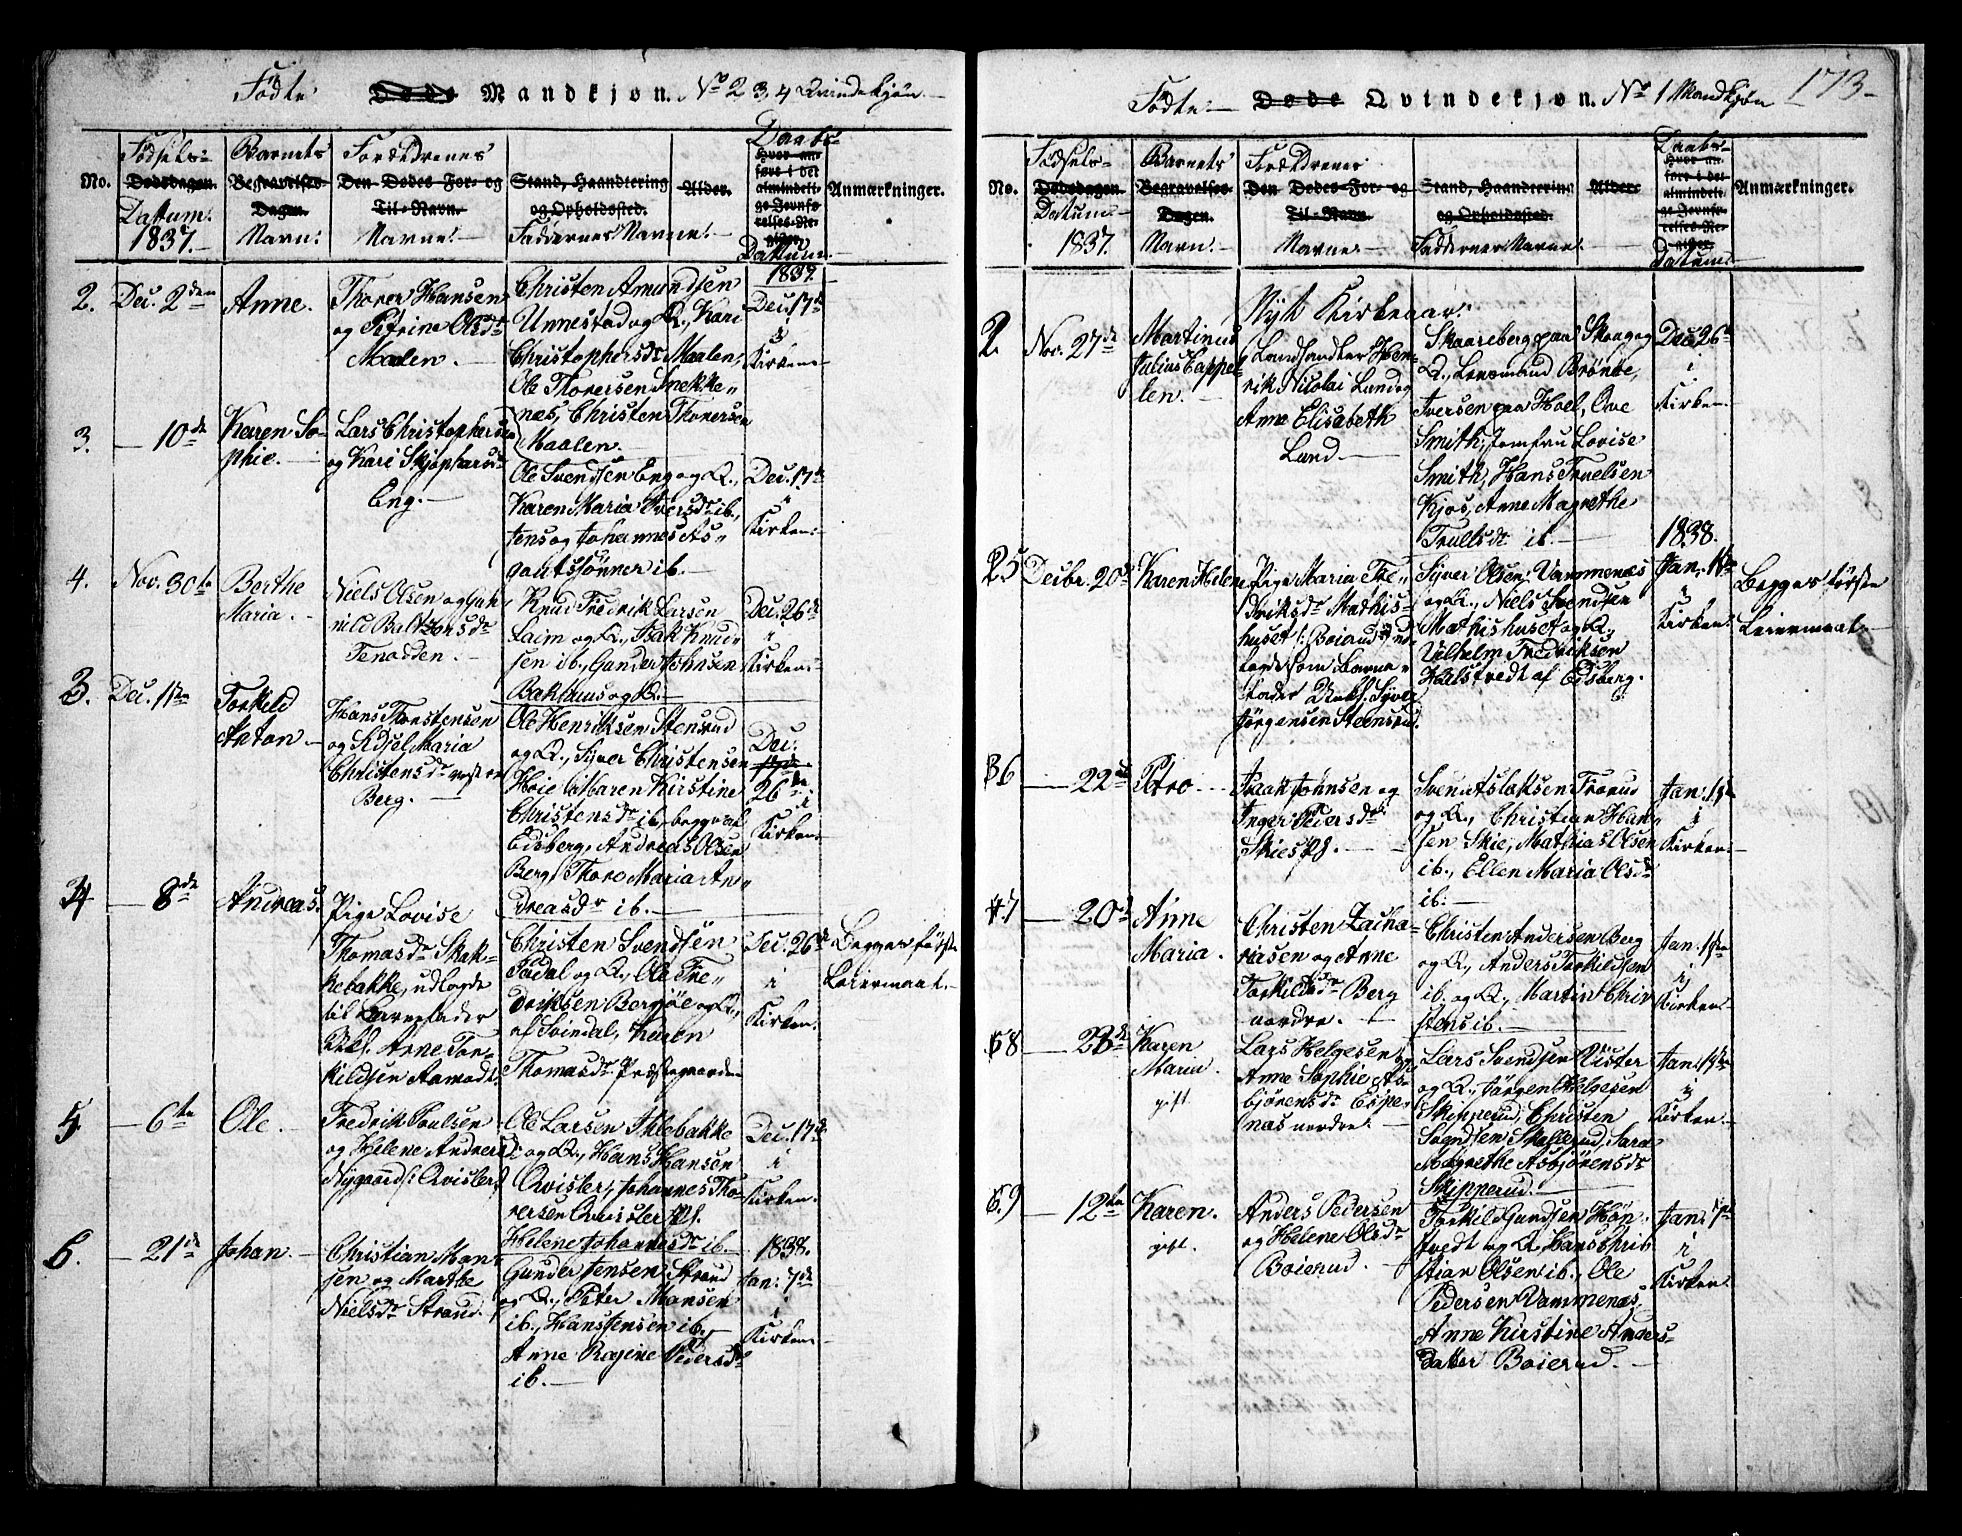 Fødte: Døde Mandkjøn. No 2 3, 4 Qvindekjøn.
No.
Fødsels-
Dødsdagen.
Datum.
1837.
Barnets
Begravelses-
Dagen.
Navn:
Forældrenes
Den Dødes For- og
Til-Navn.
Navne!
Stand, Haandtering
og Opholdssted.
Faddernes Navne!
Alder.
Daabs-
Hvor an-
ført i det
almindeli-
ge Jevnfø-
relses-Re-
gister.
Datum.
Anmærkninger.
2. Dec. 2den
Anne.
Thorer Hansen
og Petrine Olsdr
Maalen.
Christen Amundsen
Unnestad og Q., Kari
Christophersdr Maalen,
Ole Thorersen Snekke-
næs, Christen Thorersen
Maalen.
1837.
Dec. 17de
i
Kirken
3. 10de
Karen So-
phie.
Lars Christophersen
og Kari Skjøpharsdr
Eng.
Ole Svendsen Eng og Q.,
Karen Maria Iversdr ib.,
Jens og Johannes As-
gautssønner ib.
Dec. 17de
i
Kirken
4. Nov. 30te
Berthe
Maria.
Niels Olsen og Gun-
nild Baltzersdr
Tenodden.
Knud Fredrik Larsen
Laim og Q., Isak Knud-
sen ib., Gunder Johnsen
Bakhuus og Q.
Dec. 26de
i
Kirken
3. Dec. 1ste
Torkeld
Anton
Hans Thorstensen
og Sidsel Maria
Christensdr
Berg.
Ole Henriksen Stensrud
og Q., Syver Christensen
Hoie, Maren Kirstine
Christensdr ib., begge af
Edsberg, Andreas Olsen
Berg, Thore Maria An-
dreasdr ib.
Dec.
17de
26de
i
Kirken
4 8de
Andreas.
Pige Lovise
Thomasdr Skak-
kebakke, udlagde
til Barnefader
Ukf. Arne Tor-
kildsen Aamodt.
Christen Svendsen
Tadal og Q., Ole Fre-
driksen Bergsøe og Q.,
af Svindal, Karen
Thomasdr Præstegaarden
Dec. 26de
i
Kirken
Begges første
Leiermaal.
5 6te
Ole.
Fredrik Poulsen
og Helene Andreasdr
Nygaard Qvisler
Ole Larsen Thlebakke
og Q., Hans Hansen
Qvisler, Johannes Tho-
rersen Qvisler
Helene Johannesdr ib.
Dec. 17de
i
Kirken
6. 21de
Johan
Christian Man-
sen og Marthe
Nielsdr Strand.
Gunder Jensen Strand
og Q., Peter Mansen
ib., Hans Jensen ib.,
Anne Regine Pedersdr
ib.
1838.
Jan: 7de
i
Kirken
Fødte: Døde Qvindekjøn. No 1 Mandkjøn 173
No.
Fødsels-
Dødsdagen.
Datum.
1837.
Barnets
Begravelses-
Dagen.
Navn!
Forældrenes
Den Dødes For- og
Til-Navn.
Navne.
Stand, Haandtering
og Opholdssted.
Faddernes Navne!
Alder.
Daabs-
Hvor an-
ført i det
almindeli-
ge Jevnfø-
relses-Re-
gister.
Datum.
Anmærkninger.
Nyt Kirkeaar.
2. Nov. 27de
Martinus
Julius Cappe-
len.
Landhandler Hen-
rik Nicolai Lund og
Anne Elisabeth
Lund.
Skaareberg paa Skougog
Q., Lensmand Brönde,
Iversen paa Hoel, Ove
Smith, Jomfru Lovise
Smith, Hans Truelsen
Kjos, Anne Magrethe
Truelsdr ib.
Dec. 26de
i
Kirken
25 Decbr. 20de
Karen Helene
Pige Maria Fre-
driksdr Mathis-
huset /: Boierud :/ ud-
lagde som Barne-
fader Ukf. Syver
Jørgensen Steensrud.
Syver Olsen Vammenæs
og Q., Niels Svendsen
Mathishuset og Q.,
Vilhelm Fredriksen
Halstvedt af Edsberg.
1838.
Jan. 1ste
i
Kirken
Begges første
Leiermaal.
36 22de
Petro
Isak Johnsen og
Inger Pedersdr
Skie
Svend Aslaksen Frorud
og Q., Christian Han-
sen Skie, Mathias Olsen
ib., Ellen Maria Olsdr
ib.
Jan: 1ste
i
Kirken
47 20de
Anne
Maria.
Christen Zacha-
riasen og Anne
Torkildsdr Berg
nordre.
Christen Andersen Berg
og Q., Anders Torkildsen
ib. og Q., Martin Chri-
stens ib.
Jan: 1ste
i
Kirken
58 23de
Karen
Maria.
gift
Lars Helgesen og
Anne Sophie As-
bjørensdr Espe-
næs nordre.
Lars Svendsen Rister
og Q., Jørgen Helgesen
Skipperud, Christen
Sagndsen Skallerud, Sara
Magrethe Asbjørensdr
Skipperud.
Jan: 1ste
i
Kirken
69 12te
Karen.
gift.
Anders Pedersen
og Helene Olsdr
Boierud.
Torkild Gundsen Høn-
stvedt og Q., Hans Chri-
stian Olsen ib., Ole
Pedersen Vammenæs,
Anne Kirstine Anders-
datter Boierud.
Jan: 7de
i
Kirken